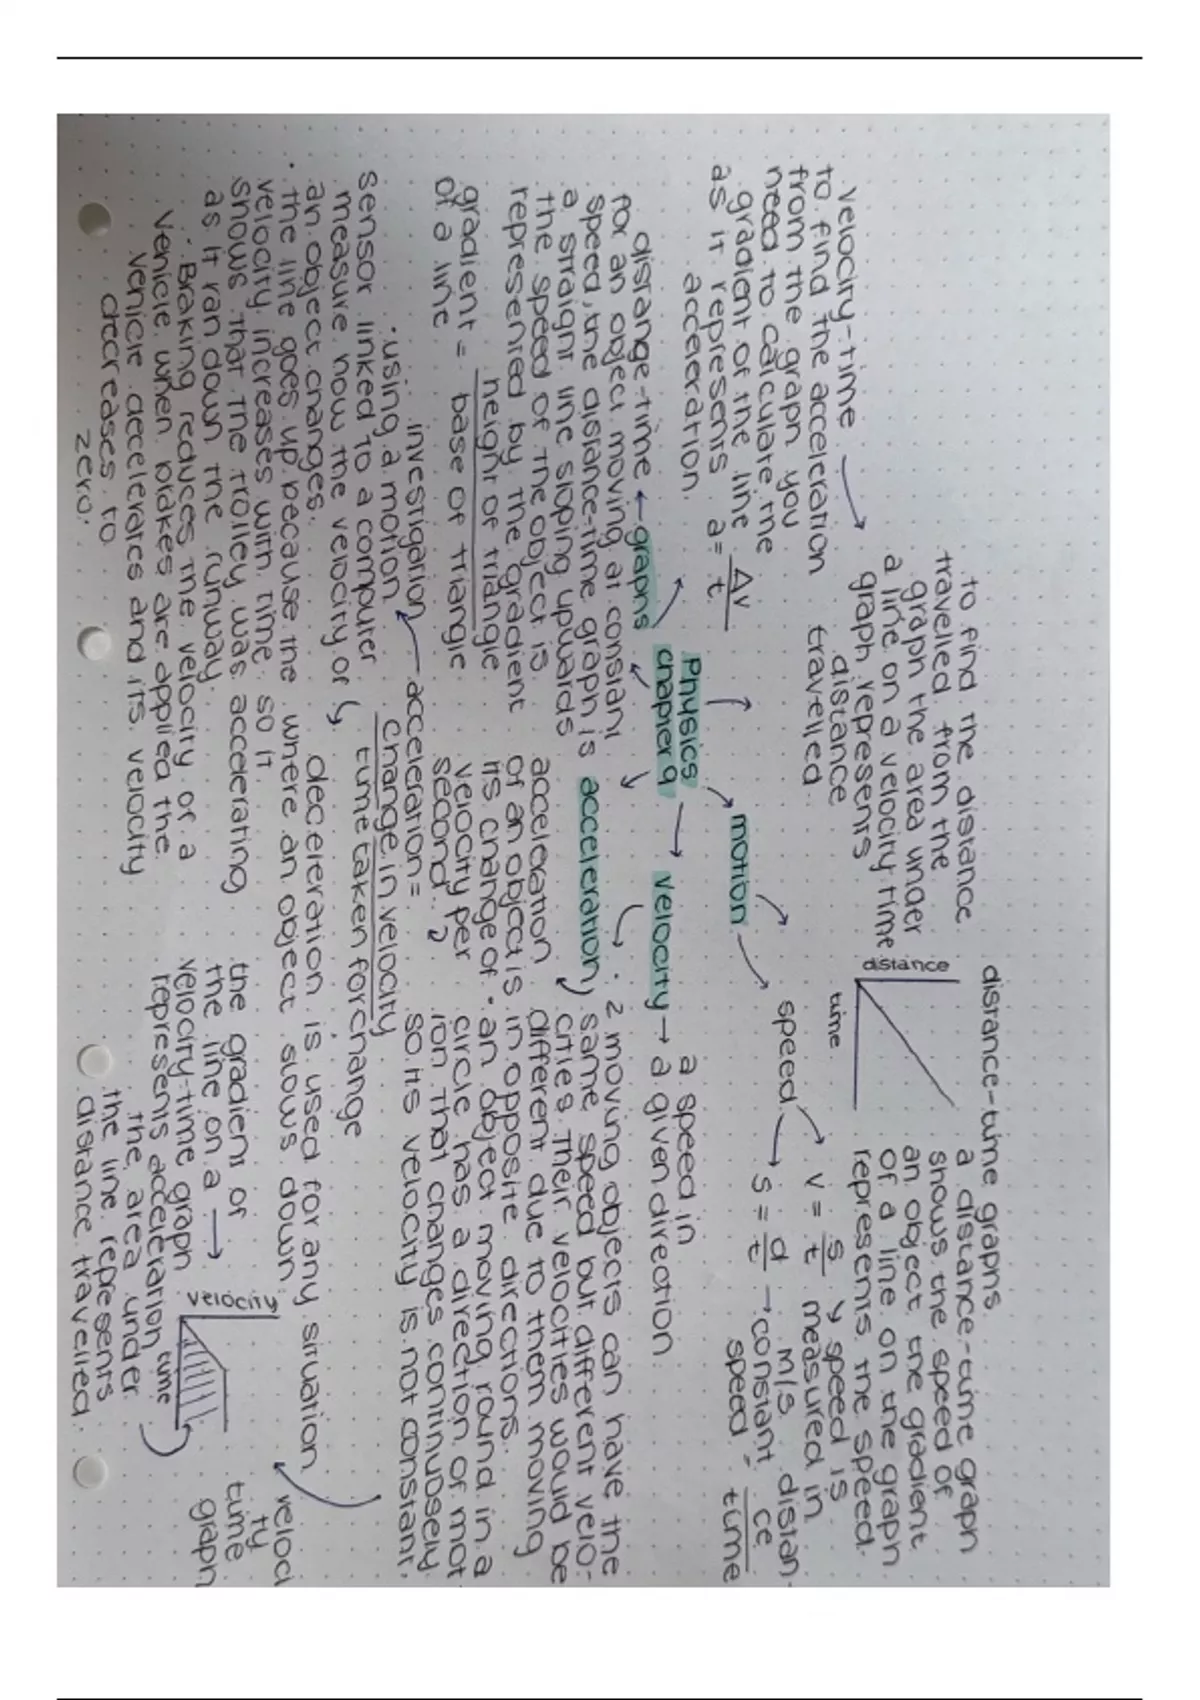 distance-time graphs.
a distance-time graph
shows the speed of
an object the gradient
of a line on the graph
represents the speed.
distance
time
to find the distance
travelled from the
graph the area under
a line on a velocity time
graph represents
distance
travelled
velocity-time
to find the acceleration
from the graph you
need to calculate the
gradient of the line
as it represents
acceleration.
a = Δv
t
Physics
chapter 9
motion
speed
v = s
t
speed is
measured in
m/s
s = d
t
constant
speed =
distan
ce
time
velocity → a speed in
a given direction
2 moving objects can have the
same speed but different velo-
cities. Their velocities would be
different due to them moving
in opposite directions.
• an object moving round in a
circle has a direction of mot
ion that changes continuosely
so its velocity is not constant.
graphs
distange-time
for an object moving at constant
speed, the distance-time graph is
a straight line sloping upwards
the speed of the object is
represented by the gradient
gradient = height of triangle
base of triangle
of a line
acceleration
acceleration
of an object is
its change of
velocity per
second.
acceleration =
change in velocity
time taken for change
deceleration is used for any situation
where an object slows down
investigation
• using a motion
sensor linked to a computer
measure how the velocity of
an object changes.
• the line goes up because the
velocity increases with time so it
shows that the trolley was accelerating
as it ran down the runway.
• Braking reduces the velocity of a
vehicle when brakes are applied the
vehicle decelerates and its velocity
decreases to
zero.
veloci
ty
time
graph
velocity
time
the gradient of
the line on a
velocity-time graph
represents acceleration
the area under
the line represents
distance travelled